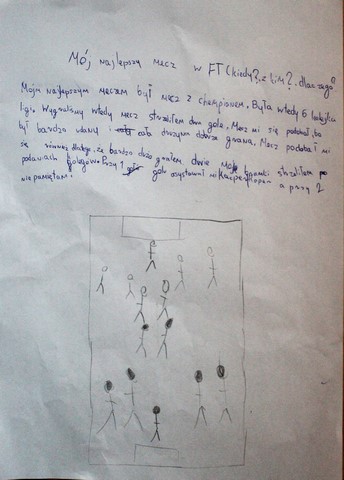 Mój najlepszy mecz w FT (kiedy?, z kim?, dlaczego?
Moim najlepszym meczem był mecz z championem. Była wtedy 6 kolejka
ligi. Wygraliśmy wtedy mecz strzeliłem dwa gole. Mecz mi się podobał, bo
był bardzo udany i cała drużyna dobrze grała. Mecz podobał mi
się również dlatego, że bardzo dużo grałem dwie bramki strzeliłem po
podaniach kolegów. Przy 1 golu asystował Kacper a przy 2
nie pamiętam.